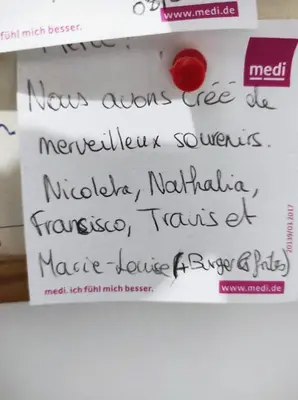 fühl mich besser.
www.medi.de
medi
Nous avons créé de
merveilleux souvenirs.
Nicoleta, Nathalia,
Francisco, Travis et
Marie-Louise (+ Burger & frites)
medi. ich fühl mich besser.
www.medi.de